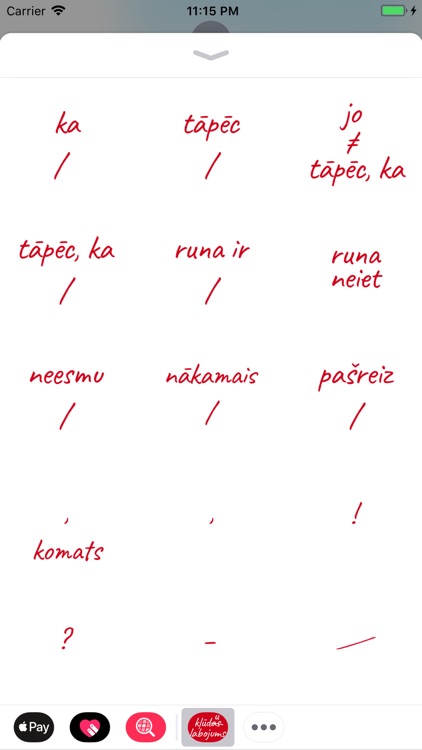 Carrier 11:15 PM
ka tāpēc jo
/ / ≠
tāpēc, ka
tāpēc, ka runa ir runa
/ / neiet
neesmu nākamais pašreiz
/ / /
, , !
komats
? - /
Pay
ü
kļūdas
labojums